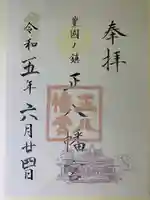 奉拝
豊國ノ鎮
正八幡宮
令和五年六月廿四日